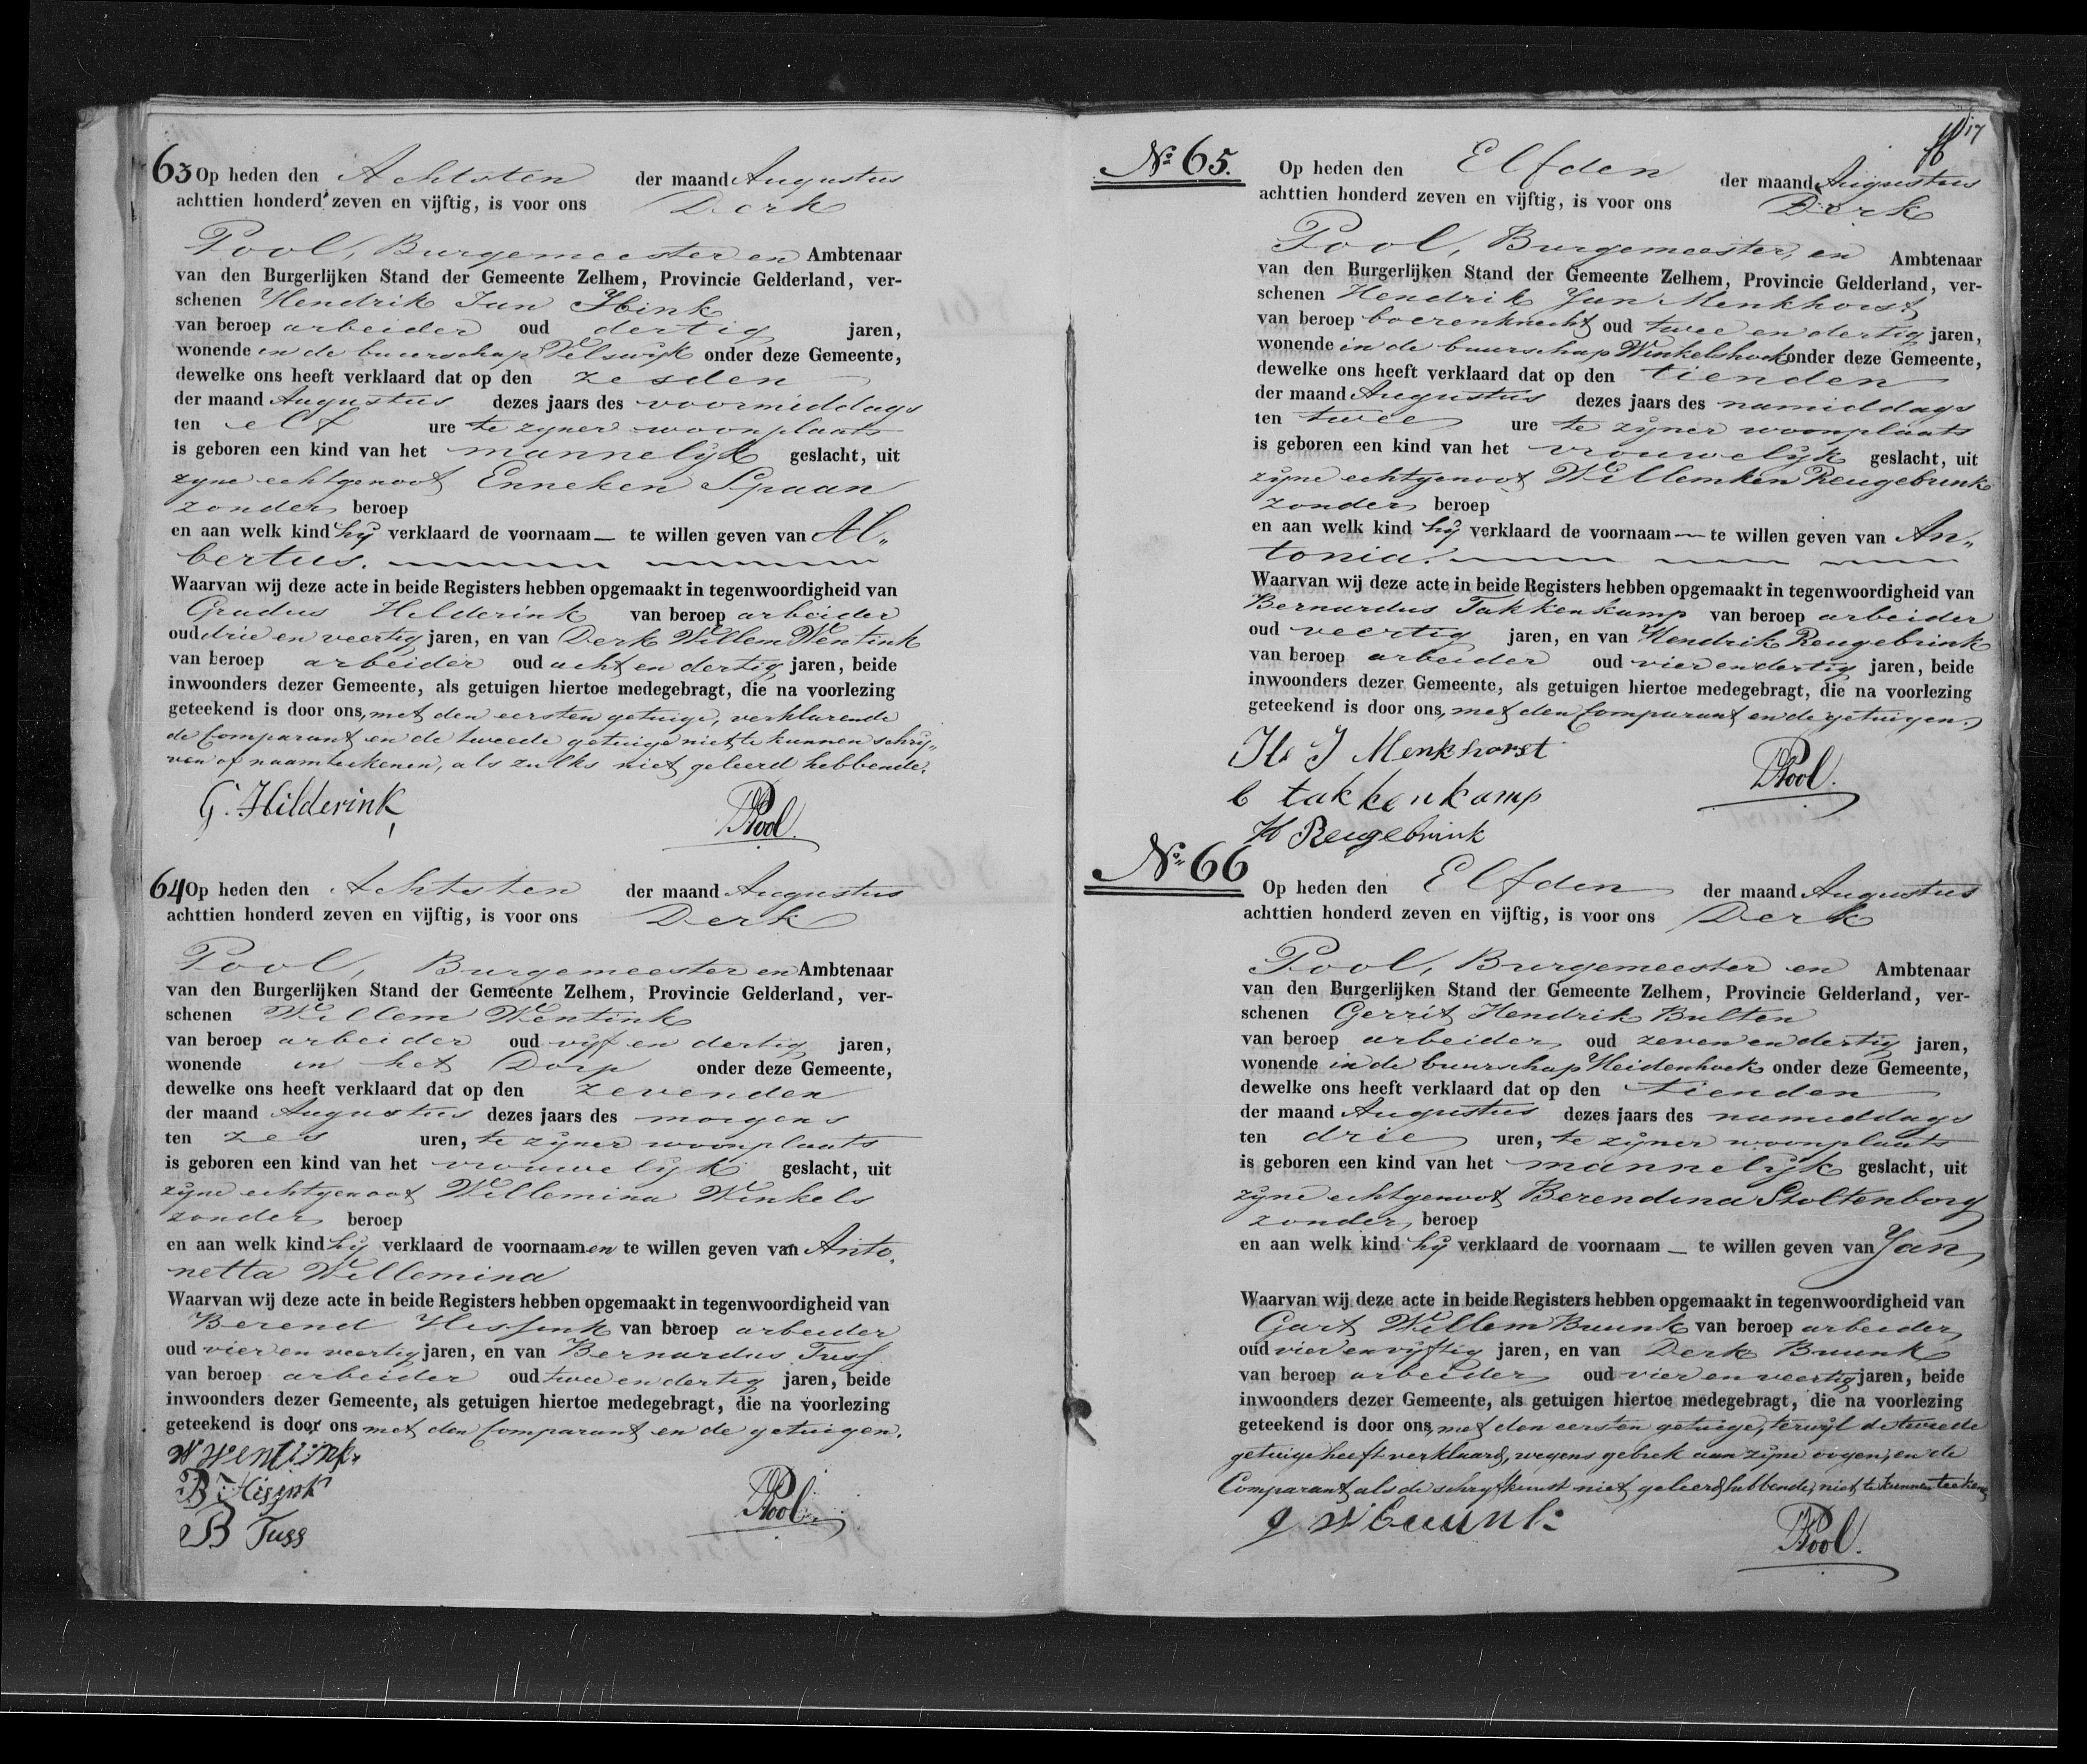 63 Op heden den Achtsten der maand Augustus
achttien honderd zeven en vijftig, is voor ons Derk
Pool, Burgemeester en Ambtenaar
van den Burgerlijken Stand der Gemeente Zelhem, Provincie Gelderland, ver-
schenen Hendrik Jan
van beroep arbeider oud dertig jaren,
wonende in de buurschap Velswijk onder deze Gemeente,
dewelke ons heeft verklaard dat op den zesden
der maand Augustus dezes jaars des voormiddags
ten elf ure te zyner woonplaats
is geboren een kind van het mannelyk geslacht, uit
zyne echtgenoot Enneken Spaan
zonder beroep
en aan welk kind hy verklaard de voornaam — te willen geven van Al„
bertus.
Waarvan wij deze acte in beide Registers hebben opgemaakt in tegenwoordigheid van
Gradus Helderink van beroep arbeider
oud drie en veertig jaren, en van Derk Willem Wentink
van beroep arbeider oud acht en dertig jaren, beide
inwoonders dezer Gemeente, als getuigen hiertoe medegebragt, die na voorlezing
geteekend is door ons, met den eersten getuige, verklarende
de Comparant en de tweede getuige niet te kunnen schry„
ven of naamteekenen, als zulks niet geleerd hebbende.
G. Hilderink
DPool.
64 Op heden den Achtsten der maand Augustus
achttien honderd zeven en vijftig, is voor ons Derk
Pool, Burgemeester en Ambtenaar
van den Burgerlijken Stand der Gemeente Zelhem, Provincie Gelderland, ver-
schenen Willem Wentink
van beroep arbeider oud vyf en dertig jaren,
wonende in het Dorp onder deze Gemeente,
dewelke ons heeft verklaard dat op den zevenden
der maand Augustus dezes jaars des morgens
ten zes uren, te zyner woonplaats
is geboren een kind van het vrouwelyk geslacht, uit
zyne echtgenoot Willemina Winkels
zonder beroep
en aan welk kind hy verklaard de voornaamen te willen geven van Anto„
netta Willemina
Waarvan wij deze acte in beide Registers hebben opgemaakt in tegenwoordigheid van
Berend Hissink van beroep arbeider
oud vier en veertig jaren, en van Bernardus Tuss
van beroep arbeider oud twee en dertig jaren, beide
inwoonders dezer Gemeente, als getuigen hiertoe medegebragt, die na voorlezing
geteekend is door ons met den Comparant en de getuigen.
W Wentink
B Hisink
B Tuss
DPool.
17
No 65. Op heden den Elfden der maand Augustus
achttien honderd zeven en vijftig, is voor ons Derk
Pool, Burgemeester, en Ambtenaar
van den Burgerlijken Stand der Gemeente Zelhem, Provincie Gelderland, ver-
schenen Hendrik Jan Menkhorst
van beroep boerenknecht oud twee en dertig jaren,
wonende in de buurschap Winkelshoek onder deze Gemeente,
dewelke ons heeft verklaard dat op den tienden
der maand Augustus dezes jaars des namiddags
ten twee ure te zyner woonplaats
is geboren een kind van het vrouwelyk geslacht, uit
zyne echtgenoot Willemken Reugebrink
zonder beroep
en aan welk kind hy verklaard de voornaam — te willen geven van An„
tonia.
Waarvan wij deze acte in beide Registers hebben opgemaakt in tegenwoordigheid van
Bernardus Takkenkamp van beroep arbeider
oud veertig jaren, en van Hendrik Reugebrink
van beroep arbeider oud vier en dertig jaren, beide
inwoonders dezer Gemeente, als getuigen hiertoe medegebragt, die na voorlezing
geteekend is door ons, met den Comparant en de getuigen.
H J Menkhorst
DPool.
takkenkamp
H Reugebrink
No 66 Op heden den Elfden der maand Augustus
achttien honderd zeven en vijftig, is voor ons Derk
Pool, Burgemeester en Ambtenaar
van den Burgerlijken Stand der Gemeente Zelhem, Provincie Gelderland, ver-
schenen Gerrit Hendrik Bulten
van beroep arbeider oud zeven en dertig jaren,
wonende in de buurschap Heidenhoek onder deze Gemeente,
dewelke ons heeft verklaard dat op den tienden
der maand Augustus dezes jaars des namiddags
ten drie uren, te zyner woonplaats
is geboren een kind van het mannelyk geslacht, uit
zyne echtgenoot Berendina Stoltenborg
zonder beroep
en aan welk kind hy verklaard de voornaam — te willen geven van Jan
Waarvan wij deze acte in beide Registers hebben opgemaakt in tegenwoordigheid van
Gart Willem Buunk van beroep arbeider
oud vier en vyftig jaren, en van Derk Buunk
van beroep arbeider oud vier en veertig jaren, beide
inwoonders dezer Gemeente, als getuigen hiertoe medegebragt, die na voorlezing
geteekend is door ons, met den eersten getuige, terwyl de tweede
getuige heeft verklaard, wegens gebrek aan zyne oogen, en de
Comparant als de schryfkunst niet geleerd hebbende, niet te kunnen teekenen
DPool.